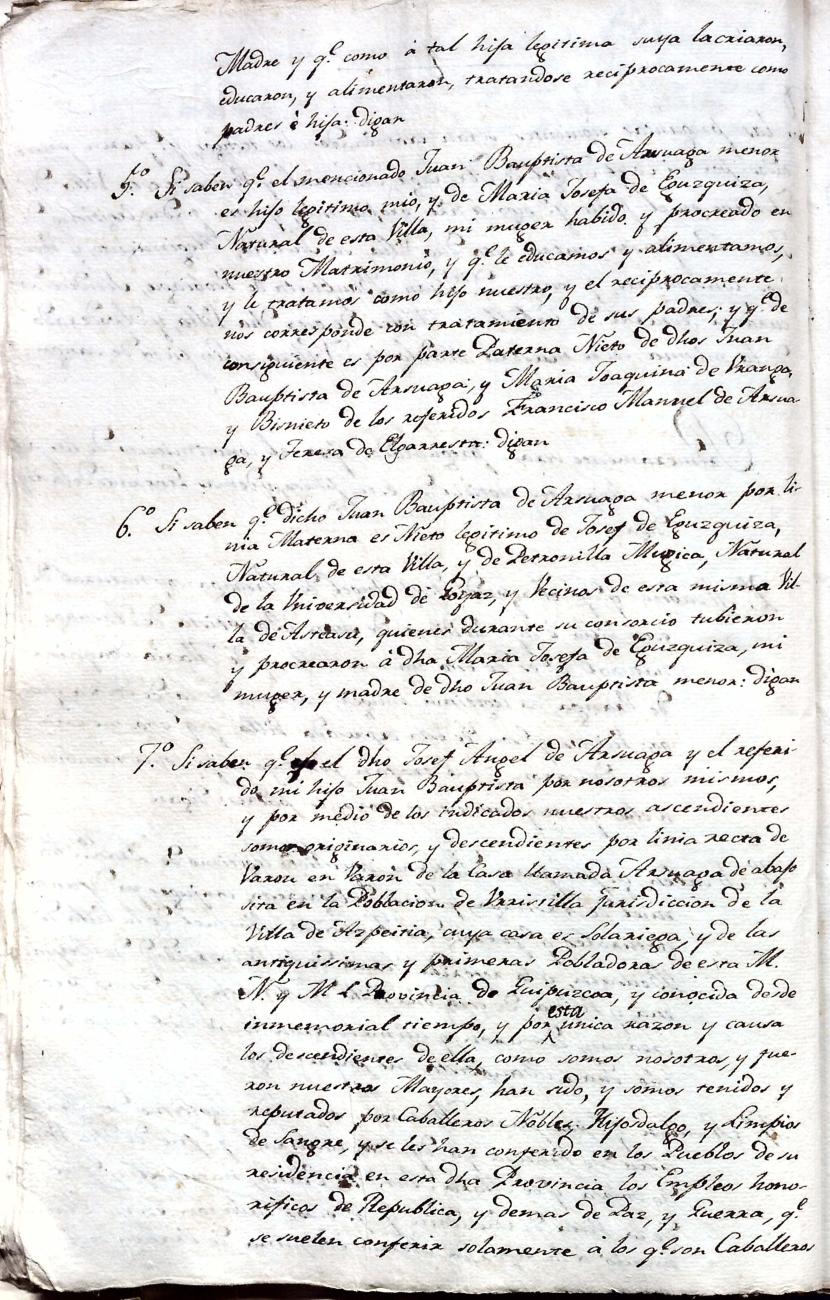 Madre y q.e como á tal hija legitima suya la criaron,
educaron, y alimentaron, tratandose reciprocamente como
padres é hija: digan
5.o Si saben q.e el mencionado Juan Bauptista de Arsuaga menor
es hijo legitimo mio, y de Maria Josefa de Eguzquiza,
Natural de esta Villa, mi muger habido y procreado en
nuestro Matrimonio, y q.e le educamos y alimentamos,
y le tratamos como hijo nuestro, y el reciprocamente
nos corresponde con tratamiento de sus padres; y q.e de
consiguiente es por parte Paterna Nieto de dhos Juan
Bauptista de Arsuaga, y Maria Joaquina de Uranga,
y Bisnieto de los referidos Francisco Manuel de Arsua-
ga, y Teresa de Elgarresta: digan
6.o Si saben q.e dicho Juan Bauptista de Arsuaga menor por li-
nia Materna es Nieto legitimo de Josef de Eguzquiza,
Natural de esta Villa, y de Petronilla Mugica, Natural
de la Universidad de Goyaz, y Vecinos de esta misma Vil-
la de Asteasu, quienes durante su consorcio tubieron
y procrearon á dha Maria Josefa de Eguzquiza, mi
muger, y madre de dho Juan Bauptista menor: digan
7.o Si saben q.e yo el dho Josef Angel de Arsuaga y el referi-
do mi hijo Juan Bauptista por nosotros mismos,
y por medio de los indicados nuestros ascendientes
somos originarios, y descendientes por linia recta de
Varon en Varon de la Casa llamada Arsuaga de abajo
sita en la Poblacion de Urristilla jurisdiccion de la
Villa de Azpeitia, cuya casa es Solariega, y de las
antiquissimas y primeras Pobladoras de esta M.
N. y M. L. Provincia de Guipuzcoa, y conocida desde
inmemorial tiempo, y por esta unica razon y causa
los descendientes de ella, como somos nosotros, y fue-
ron nuestros Mayores, han sido, y somos tenidos y
reputados por Caballeros Nobles, Hijosdalgo, y Limpios
de Sangre, y se les han conferido en los Pueblos de su
residencia en esta dha Provincia los Empleos hono-
rificos de Republica, y demas de Paz, y Guerra, q.e
se suelen conferir solamente á los q.e son Caballeros